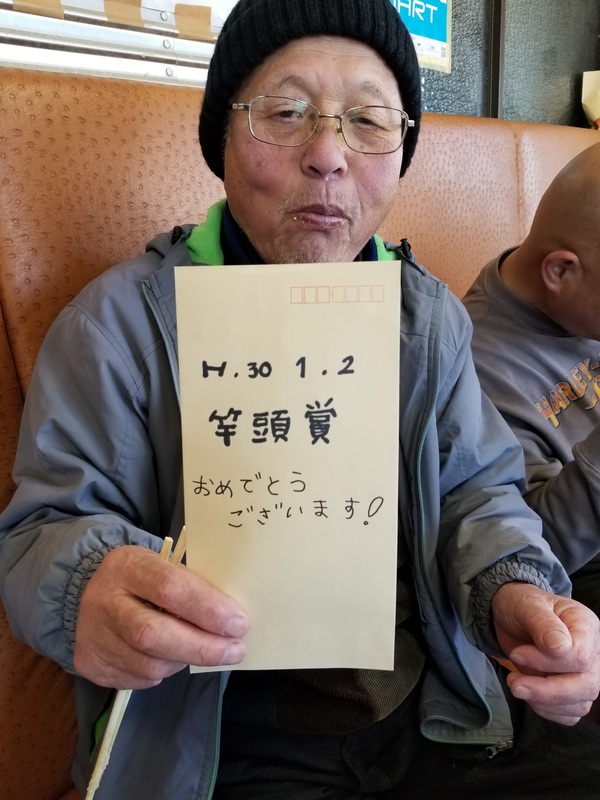 MART
H.30 1.2
竿頭賞
おめでとう
ございます!
HARLEY-